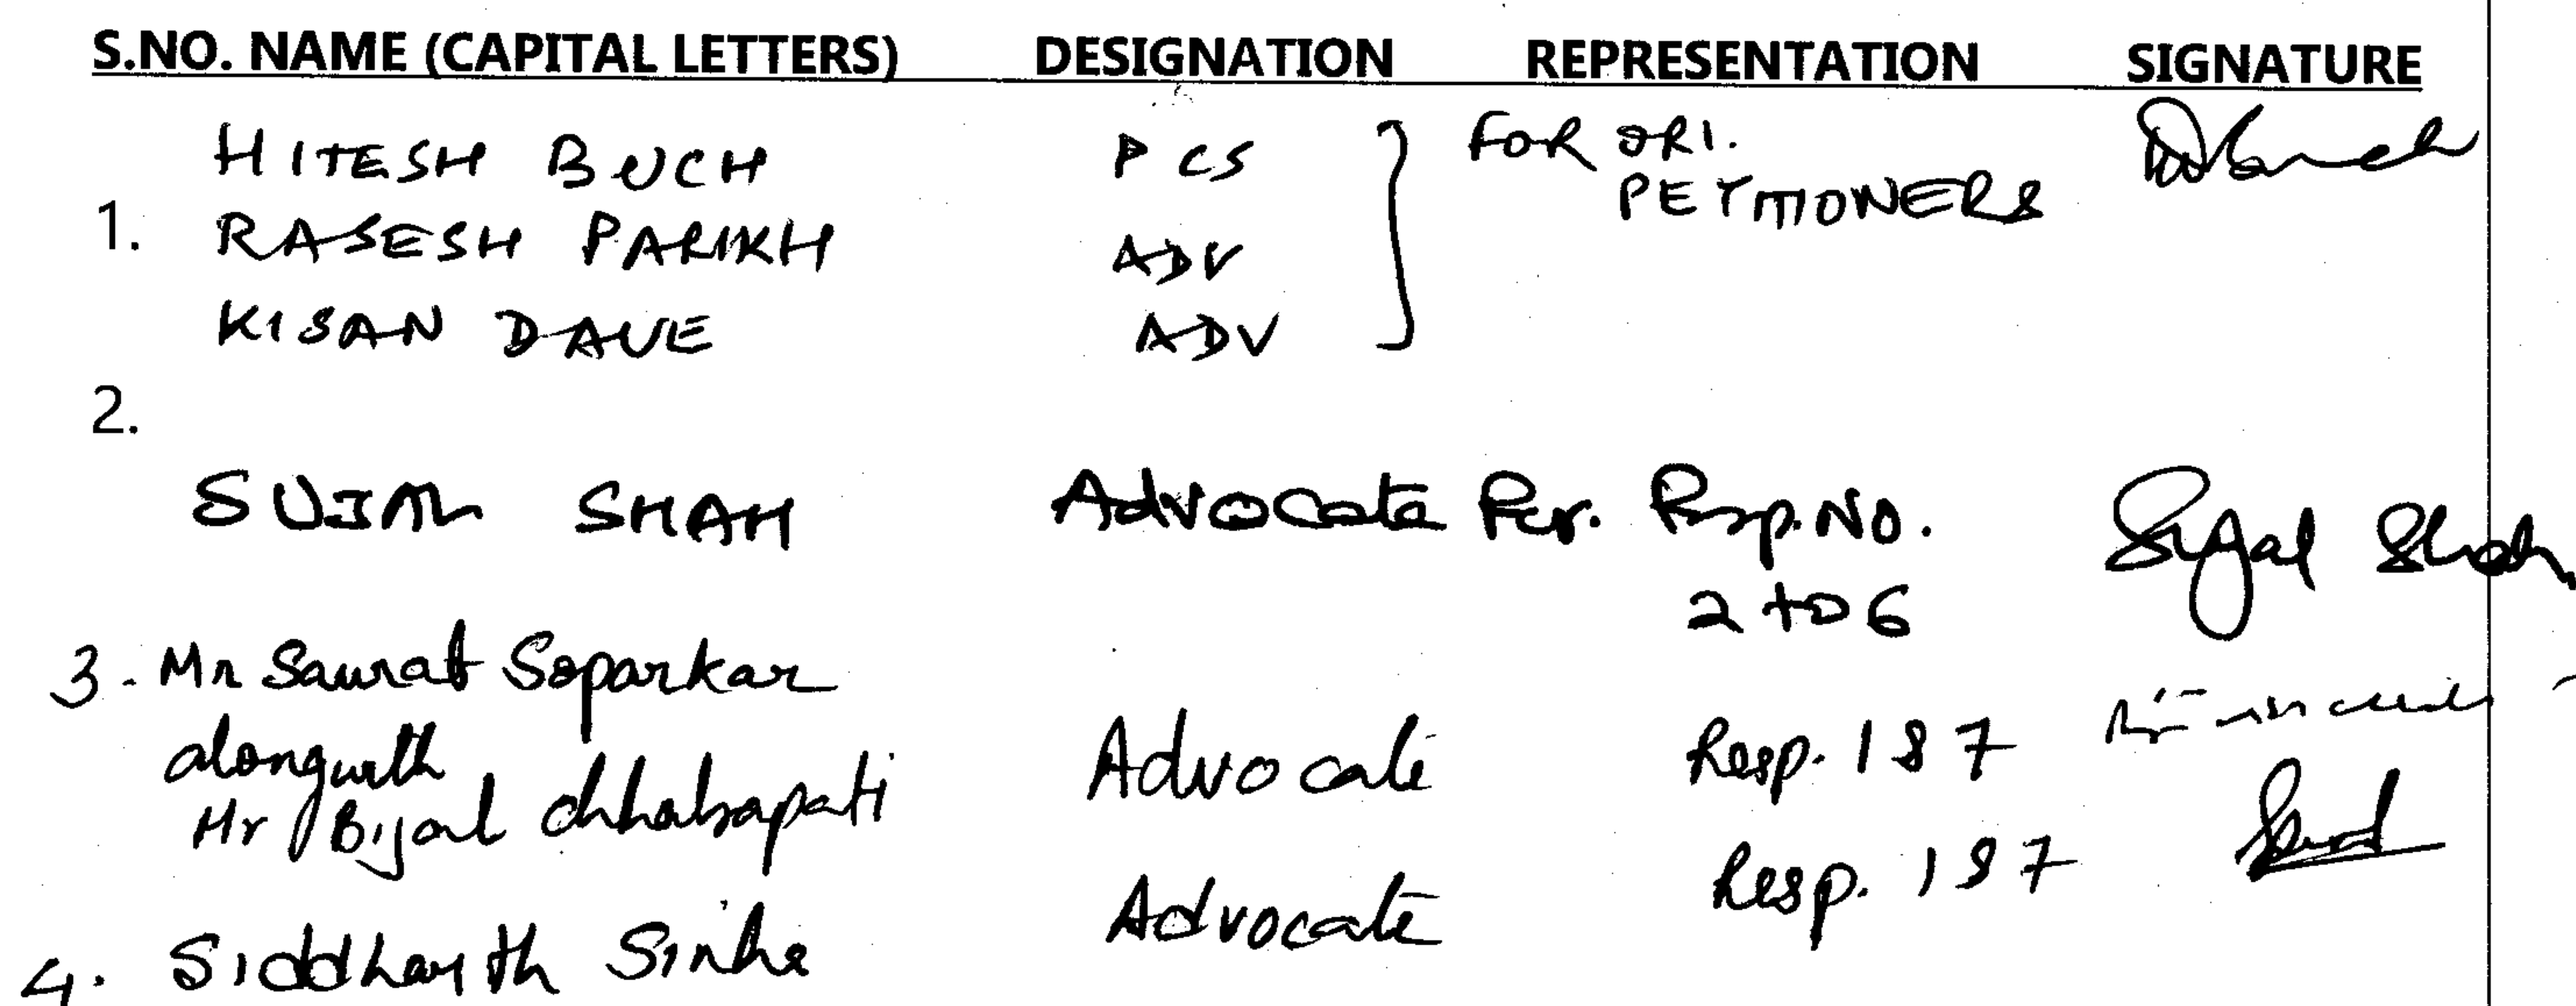 S.NO. NAME (CAPITAL LETTERS) DESIGNATION REPRESENTATION SIGNATURE
HITESH BUCH PCS FOR ORI.
PETITIONERS
1. RASESH PARIKH ADV
KISAN DAVE ADV
2.
SUJAL SHAH Advocate For. Resp. No. Sujal Shah
2 to 6
3. Mr Saurabh Soparkar
alongwith Advocate Resp. 1 & 7
Mr Bijal Chhatrapati
Advocate Resp. 1 & 7
4. Siddharth Sinha